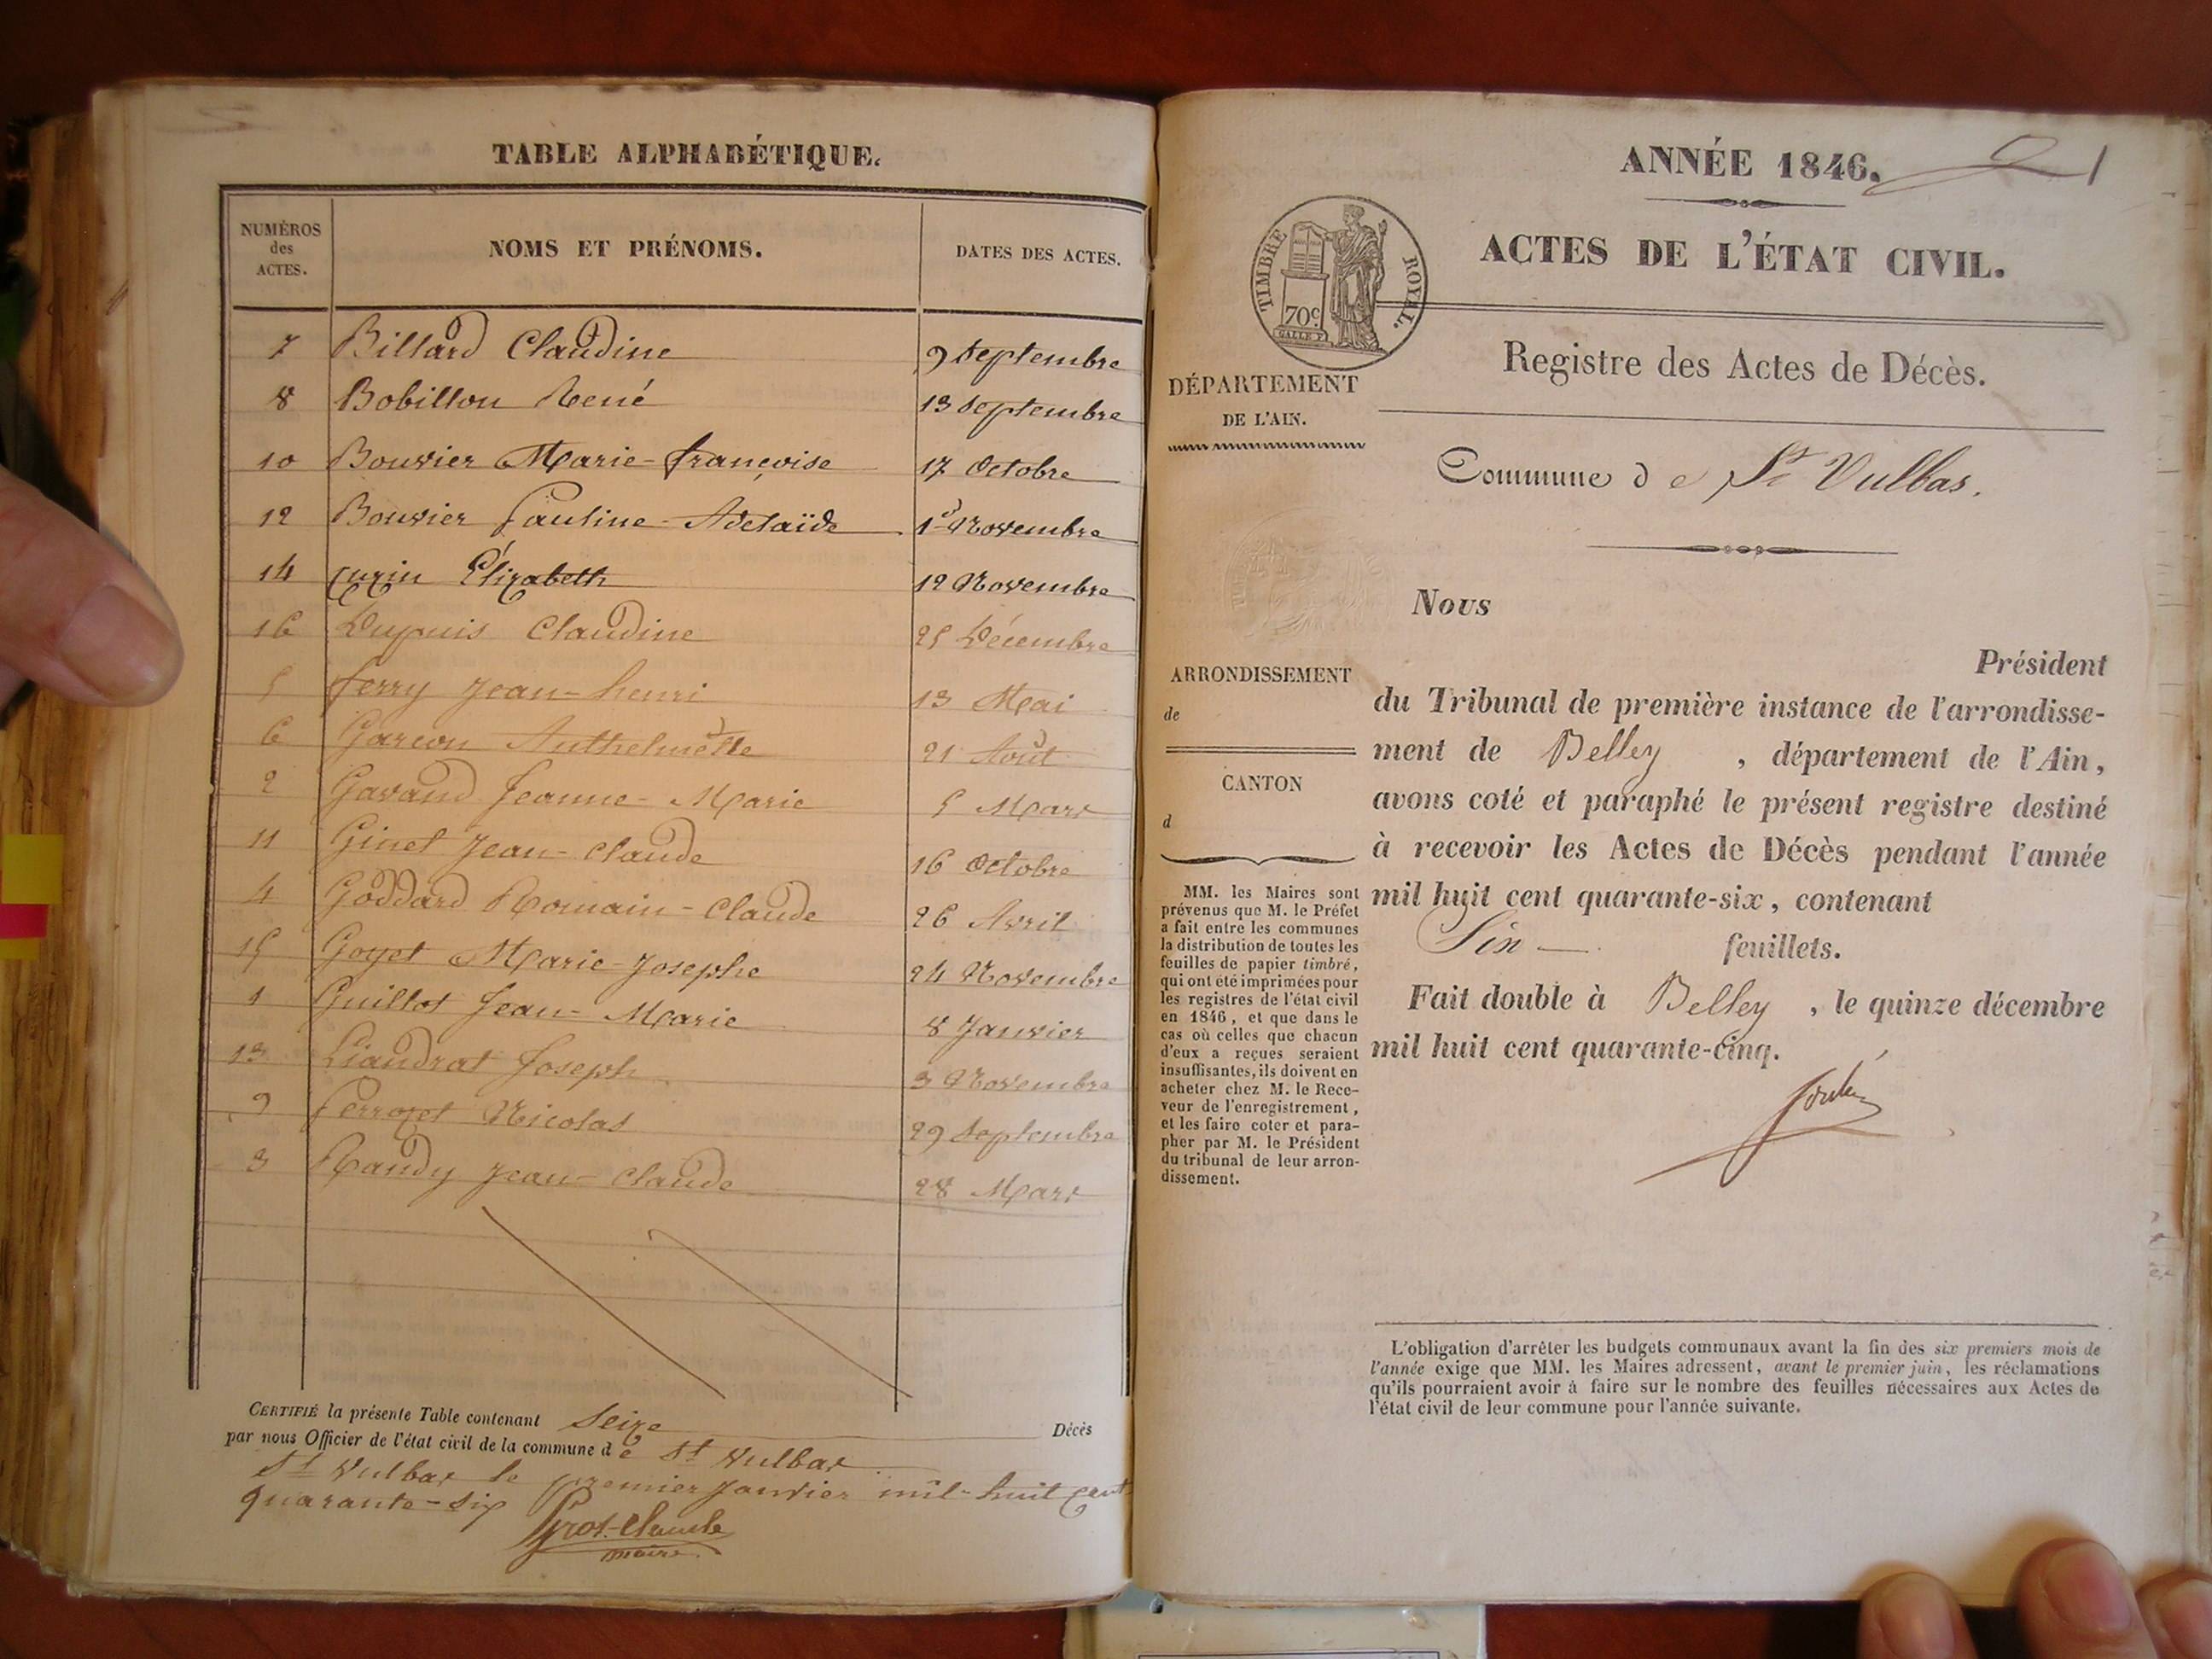 TABLE ALPHABÉTIQUE.
NUMÉROS des ACTES. NOMS ET PRÉNOMS. DATES DES ACTES.
7 Billard Claudine 9 Septembre
8 Bobillon René 13 Septembre
10 Bouvier Marie-françoise 17 Octobre
12 Bouvier Pauline-Adelaïde 1er Novembre
14 Cuzin Élizabeth 12 Novembre
16 Dupuis Claudine 25 Décembre
5 ferry Jean-henri 13 Mai
6 Garcon Anthelmette 21 Août
2 Gavand Jeanne-Marie 5 Mars
11 Ginet Jean-claude 16 Octobre
4 Goddard Romain-claude 26 Avril
15 Goyet Marie-Josephe 24 Novembre
1 Guillot Jean-Marie 8 Janvier
13 Liaudrat Joseph 3 Novembre
9 Perrozet Nicolas 29 Septembre
3 Randy Jean-claude 28 Mars
CERTIFIÉ la présente Table contenant Seize Décès
par nous Officier de l'état civil de la commune de St Vulbas
St Vulbas le premier Janvier mil-huit cent
quarante-six
Gros-Claude
maire
ANNÉE 1846. 1
ACTES DE L'ÉTAT CIVIL.
TIMBRE ROYAL.
70c
Registre des Actes de Décès.
DÉPARTEMENT
DE L'AIN.
Commune de St Vulbas.
Nous
Président
du Tribunal de première instance de l'arrondisse-
ment de Belley, département de l'Ain,
avons coté et paraphé le présent registre destiné
à recevoir les Actes de Décès pendant l'année
mil huit cent quarante-six, contenant
Six feuillets.
Fait double à Belley, le quinze décembre
mil huit cent quarante-cinq.
ARRONDISSEMENT
de
CANTON
d
MM. les Maires sont
prévenus que M. le Préfet
a fait entre les communes
la distribution de toutes les
feuilles de papier timbré,
qui ont été imprimées pour
les registres de l'état civil
en 1846, et que dans le
cas où celles que chacun
d'eux a reçues seraient
insuffisantes, ils doivent en
acheter chez M. le Rece-
veur de l'enregistrement,
et les faire coter et para-
pher par M. le Président
du tribunal de leur arron-
dissement.
L'obligation d'arrêter les budgets communaux avant la fin des six premiers mois de
l'année exige que MM. les Maires adressent, avant le premier juin, les réclamations
qu'ils pourraient avoir à faire sur le nombre des feuilles nécessaires aux Actes de
l'état civil de leur commune pour l'année suivante.